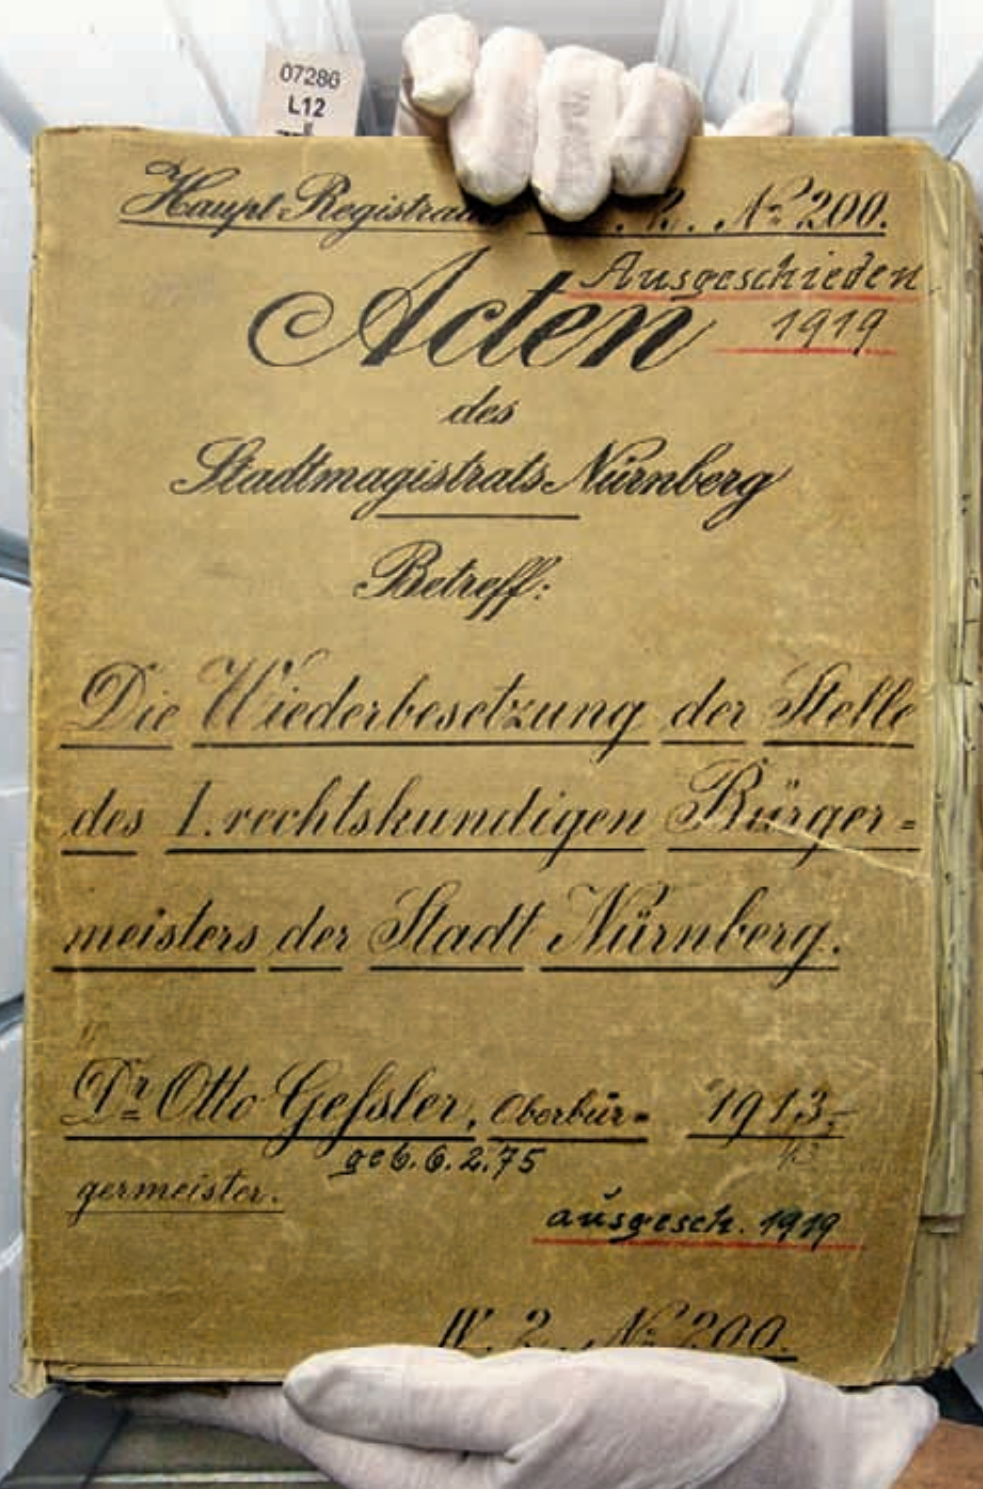 07286
L12
Haupt-Registra
N° 200.
Ausgeschieden
Acten
1919
des
Stadtmagistrats Nürnberg
Betreff:
Die Wiederbesetzung der Stelle
des I. rechtskundigen Bürger=
meisters der Stadt Nürnberg.
Dr Otto Geſsler, Oberbür= 1913-
geb. 6. 2. 75
germeister.
ausgesch. 1919
N° 200.